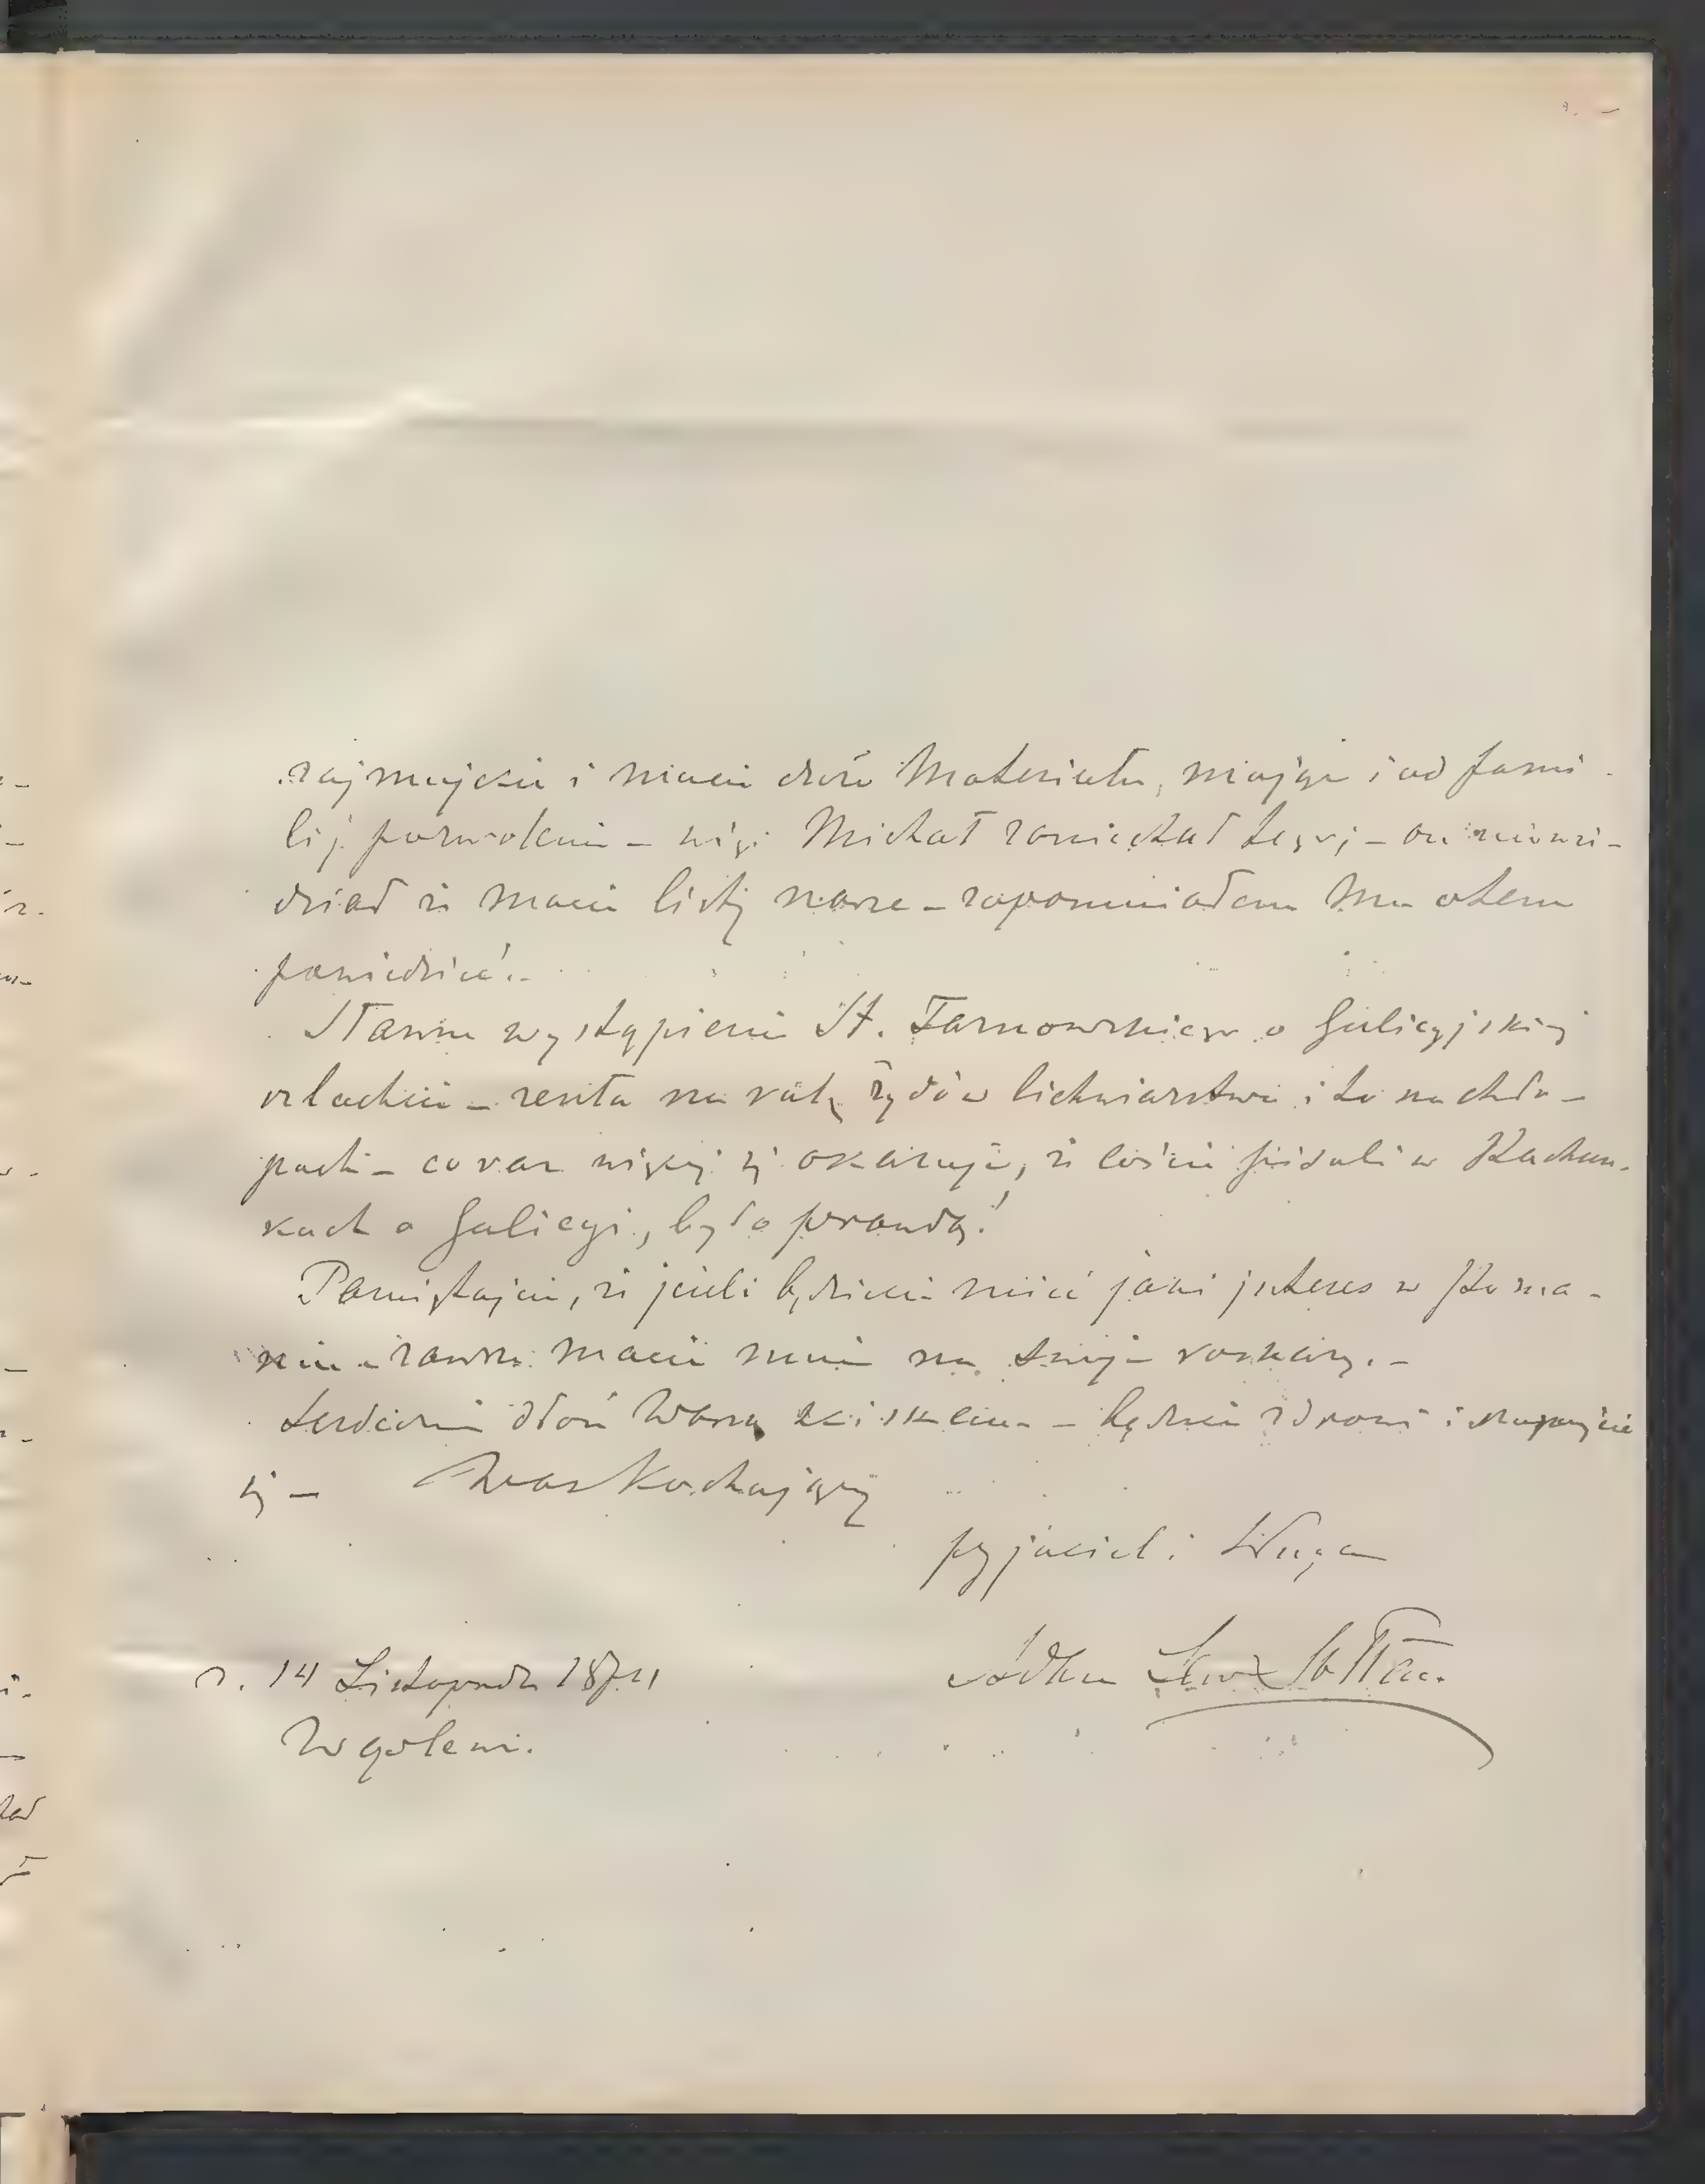 zajmujecie i macie dużo Materiału, mając i od fami
lij pozwolenie – więc Michał zaniechał tego; – on niewie-
dział że macie listy nasze – zapomniałem Mu otem
powiedzieć.
Sławne wystąpienie St. Tarnowskiego o Galicyjskiej
szlachcie – reszta na rolę żydów lichwiarstwa i to na chło-
pach – co raz więcej się okazuje, że coście pisali w Rachun-
kach o Galicyi, było prawdą!
Pamiętajcie, że jeżeli będziecie mieć jaki jnteres w Pozna-
niu – zawsze macie mnie na swoje rozkazy. –
Serdecznie dłoń Waszą ściskam – bądźcie zdrowi i
się – Was Kochający
przyjaciel i Sługa
Adam Lew Sołtan.
d. 14 Listopada 1871